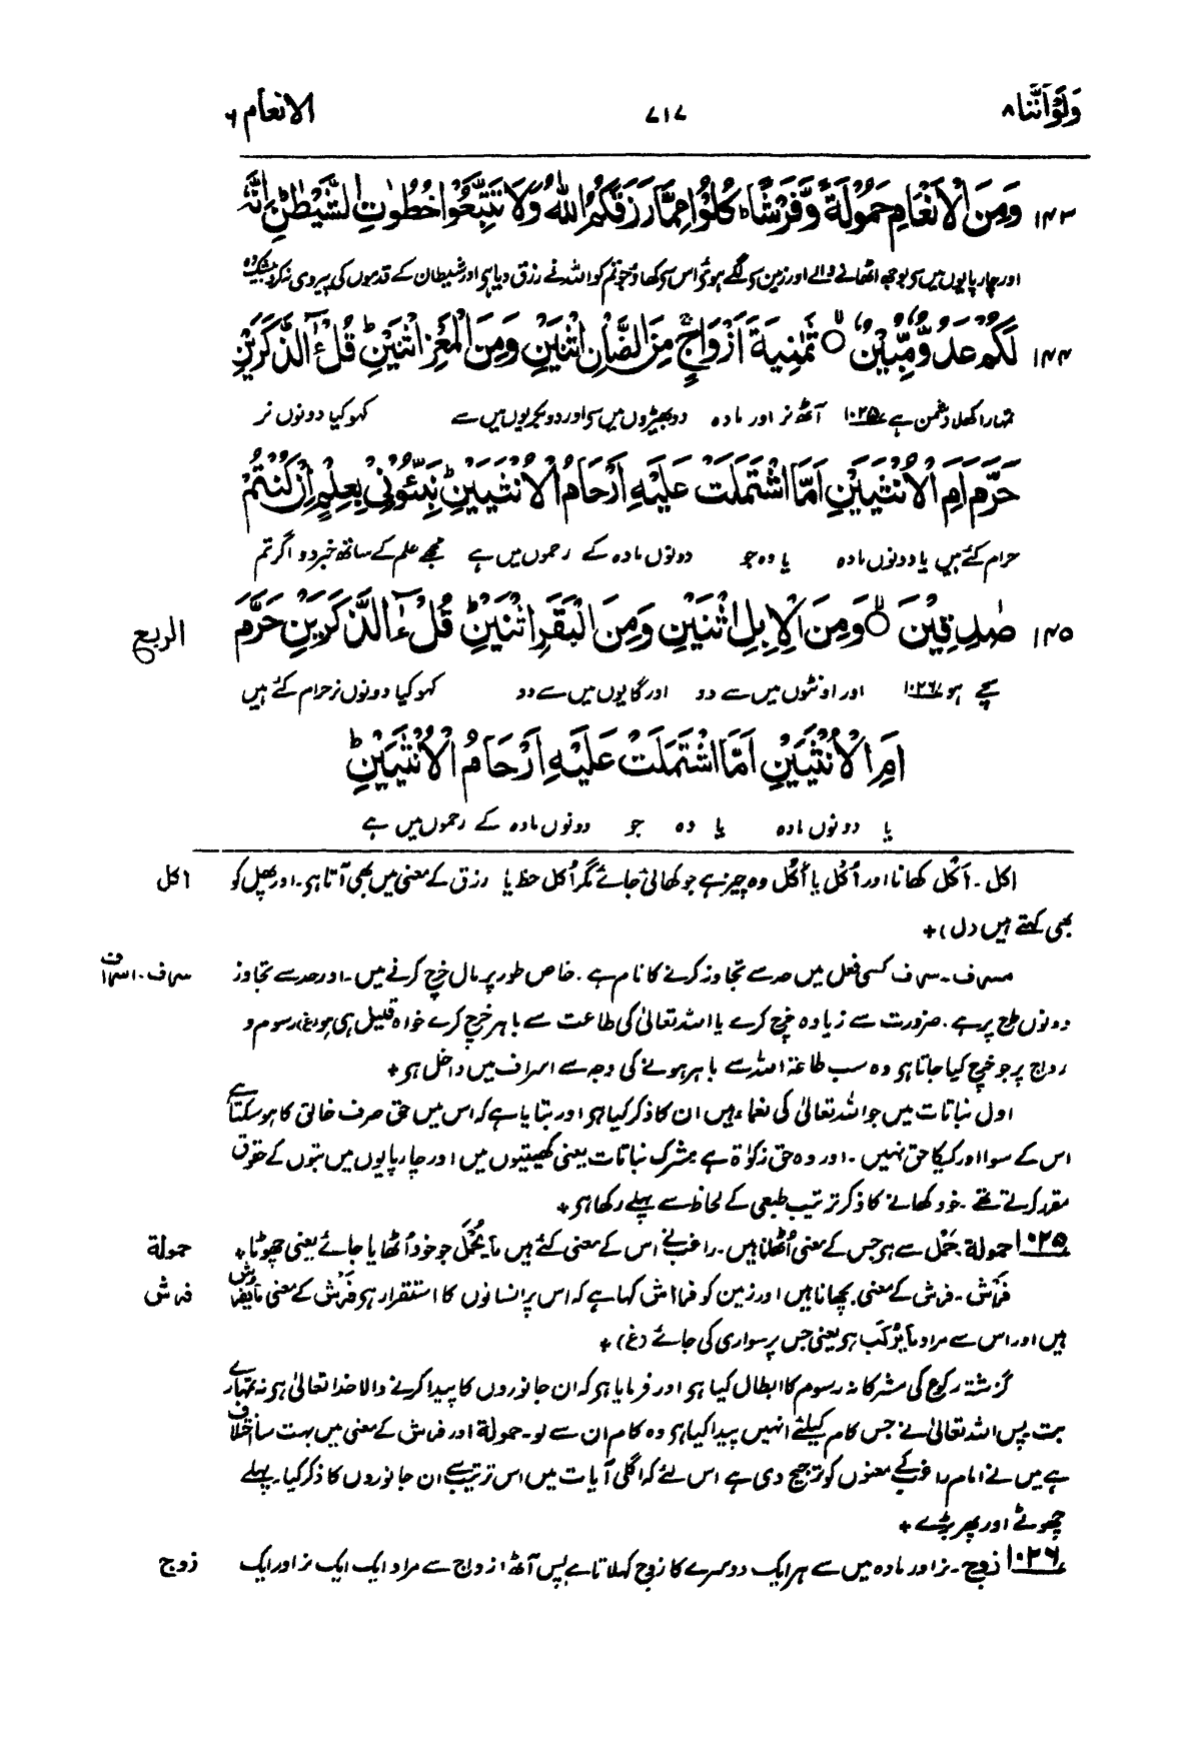 ولو اننا ۸ ۷۱۷ الانعام ۶
۱۴۳ وَمِنَ الْاَنْعَامِ حَمُوْلَةً وَّفَرْشًا ؕ كُلُوْا مِمَّا رَزَقَكُمُ اللّٰهُ وَلَا تَتَّبِعُوْا خُطُوٰتِ الشَّيْطٰنِ ؕ اِنَّهٗ
اور چارپایوں میں سی بوجھ اٹھانے والے اور زمین سی لگے ہوئی اس سی کھاؤ جو تم کو اللہ نے رزق دیا ہی اور شیطان کے قدموں کی پیروی نکرو بیشک وہ
۱۴۴ لَكُمْ عَدُوٌّ مُّبِيْنٌ ۙ ثَمٰنِيَةَ اَزْوَاجٍ ۚ مِنَ الضَّاْنِ اثْنَيْنِ وَمِنَ الْمَعْزِ اثْنَيْنِ ؕ قُلْ ءٰٓالذَّكَرَيْنِ
تمہارا کھلا دشمن ہے ۱۰۲۵ آٹھ نر اور مادہ دو بھیڑوں میں سی اور دو بکریوں میں سے کہو کیا دونوں نر
حَرَّمَ اَمِ الْاُنْثَيَيْنِ اَمَّا اشْتَمَلَتْ عَلَيْهِ اَرْحَامُ الْاُنْثَيَيْنِ ؕ نَبِّئُوْنِيْ بِعِلْمٍ اِنْ كُنْتُمْ
حرام کئے ہیں یا دونوں مادہ یا وہ جو دونوں مادہ کے رحموں میں ہے مجھے علم کے ساتھ خبر دو اگر تم
۱۴۵ صٰدِقِيْنَ ۙ وَمِنَ الْاِبِلِ اثْنَيْنِ وَمِنَ الْبَقَرِ اثْنَيْنِ ؕ قُلْ ءٰٓالذَّكَرَيْنِ حَرَّمَ الربع
سچے ہو ۱۰۲۶ اور اونٹوں میں سے دو اور گایوں میں سے دو کہو کیا دونوں نر حرام کئے ہیں
اَمِ الْاُنْثَيَيْنِ اَمَّا اشْتَمَلَتْ عَلَيْهِ اَرْحَامُ الْاُنْثَيَيْنِ ؕ
یا دونوں مادہ یا وہ جو دونوں مادہ کے رحموں میں ہے
اکل ۔ اَکْل کھانا اور اُکُل یا اُکْل وہ چیز ہے جو کھائی جائے مگر اُکل حظ یا رزق کے معنی میں بھی آتا ہو ۔ اور پھل کو اکل
بھی کہتے ہیں (ل) +
مسرف ۔ سرف کسی فعل میں حد سے تجاوز کرنے کا نام ہے ۔ خاص طور پر مال خرچ کرنے میں ۔ اور حد سے تجاوز سرف ۔ اسراف
دونوں طرح پر ہے ۔ ضرورت سے زیادہ خرچ کرے یا اللہ تعالیٰ کی طاعت سے باہر خرچ کرے خواہ قلیل ہی ہو (غ) رسوم و
رواج پر جو خرچ کیا جاتا ہو وہ سب طاعۃ اللہ سے باہر ہونے کی وجہ سے اسراف میں داخل ہو +
اول نباتات میں جو اللہ تعالیٰ کی نعماء ہیں ان کا ذکر کیا ہو اور بتایا ہے کہ اس میں حق صرف خالق کا ہو سکتا ہے
اس کے سوا اور کسیکا حق نہیں ۔ اور وہ حق زکوٰۃ ہے مشرک نباتات یعنی کھیتیوں میں اور چارپایوں میں بتوں کے حقوق
مقرر کرتے تھے ۔ خود کھانے کا ذکر ترتیب طبعی کے لحاظ سے پہلے رکھا ہو +
۱۰۲۵ حمولة حَمْل سے ہو جس کے معنی اُٹھانا ہیں ۔ راغب نے اس کے معنی کئے ہیں مَا یُحْمَل جو خود اُٹھایا جائے یعنی چھوٹا + حمولة
فَرْش ۔ فرش کے معنی بچھانا ہیں اور زمین کو فراش کہا ہے کہ اس پر انسانوں کا استقرار ہو فَرْش کے معنی مَا یُفْرَش فرش
ہیں اور اس سے مراد مَا یُرْکَب ہو یعنی جس پر سواری کی جائے (غ) +
گزشتہ رکوع کی مشرکانہ رسوم کا ابطال کیا ہو اور فرمایا ہو کہ ان جانوروں کا پیدا کرنے والا خدا تعالیٰ ہو نہ تمہارے
بت پس اللہ تعالیٰ نے جس کام کیلئے انہیں پیدا کیا ہو وہ کام ان سے لو ۔ حمولة اور فرش کے معنی میں بہت سا اختلاف
ہے میں نے امام راغب کے معنوں کو ترجیح دی ہے اس لئے کہ اگلی آیات میں اس ترتیب سے ان جانوروں کا ذکر کیا ۔ پہلے
چھوٹے اور پھر بڑے +
۱۰۲۶ زوج ۔ نر اور مادہ میں سے ہر ایک دوسرے کا زوج کہلاتا ہے پس آٹھ ازواج سے مراد ایک ایک نر اور ایک زوج